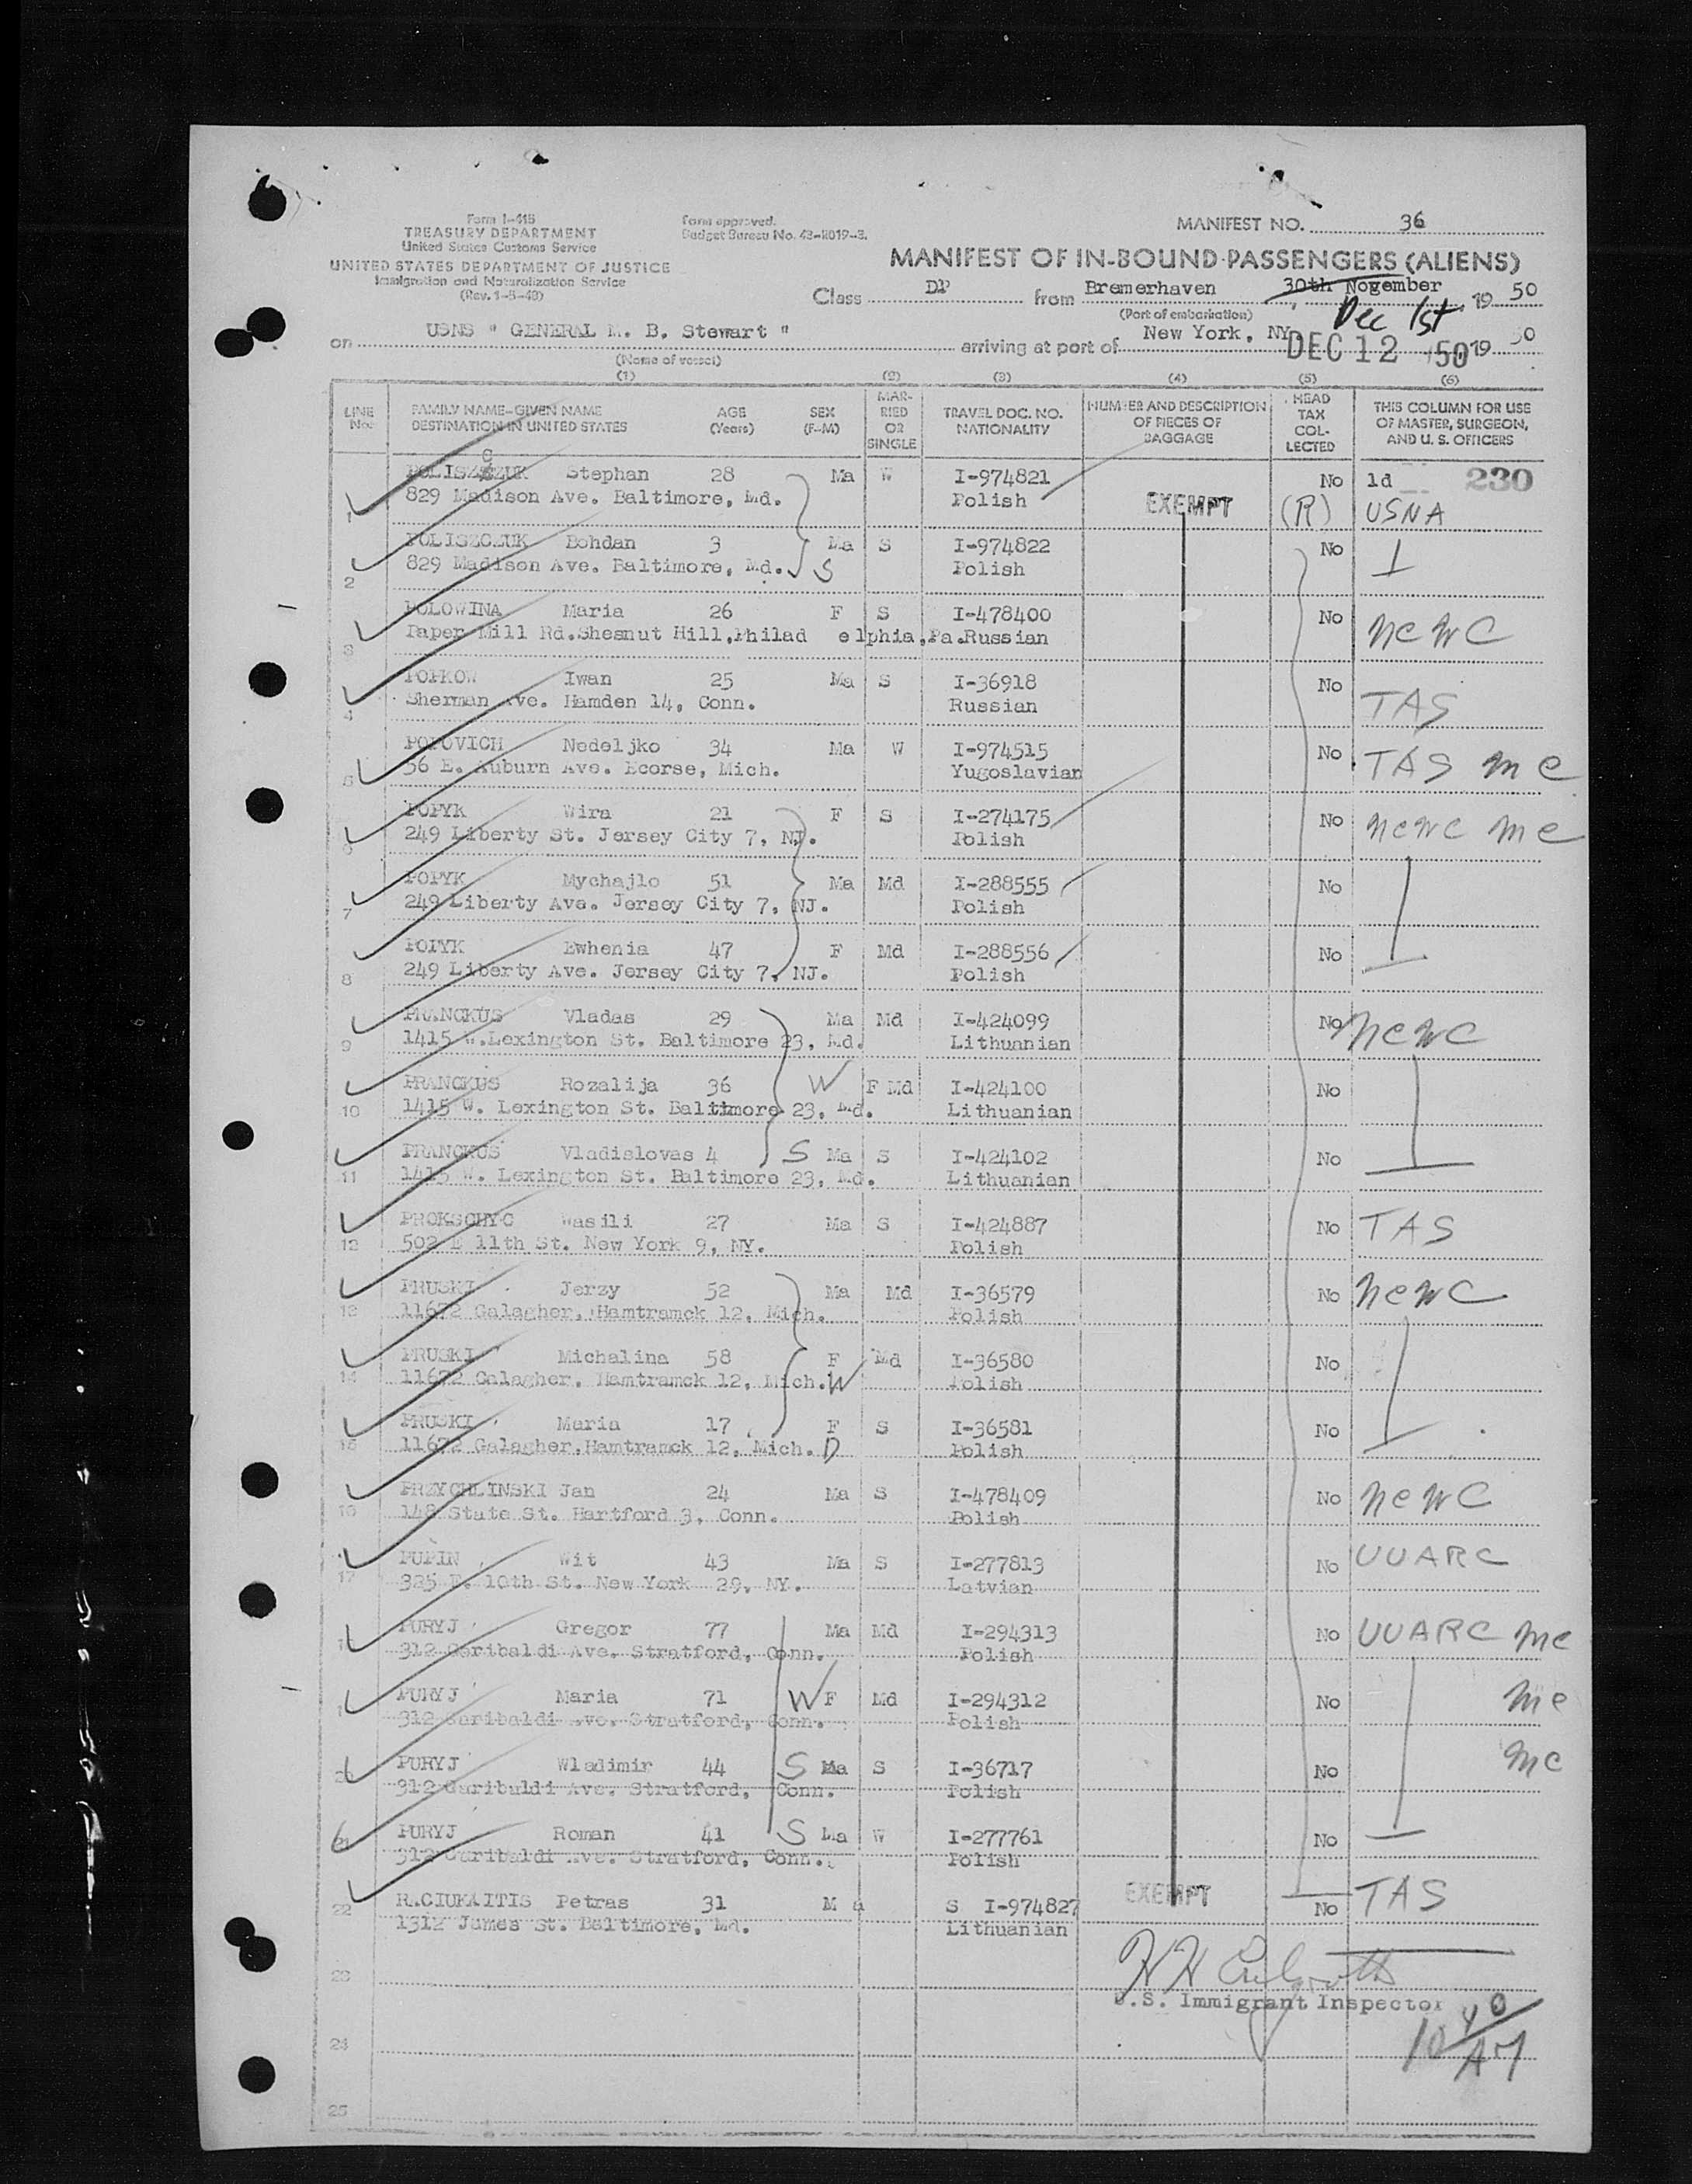 Form I-415
TREASURY DEPARTMENT
United States Customs Service
UNITED STATES DEPARTMENT OF JUSTICE
Immigration and Naturalization Service
(Rev. 1-5-49)
Form approved.
Budget Bureau No. 43-R019-3.
MANIFEST NO. 36
MANIFEST OF IN-BOUND PASSENGERS (ALIENS)
Class DP from Bremerhaven 30th Nogember 19 50
(Port of embarkation) Dec 1st
on USNS " GENERAL M. B. Stewart " arriving at port of New York, NY. DEC 12 '50 19 50
(Name of vessel)
(1) (2) (3) (4) (5) (6)
LINE No. FAMILY NAME-GIVEN NAME DESTINATION IN UNITED STATES AGE (Years) SEX (F-M) MARRIED OR SINGLE TRAVEL DOC. NO. NATIONALITY NUMBER AND DESCRIPTION OF PIECES OF BAGGAGE HEAD TAX COLLECTED THIS COLUMN FOR USE OF MASTER, SURGEON, AND U. S. OFFICERS
1 POLISZCZUK Stephan 28 Ma W I-974821 No 1d 230
829 Madison Ave. Baltimore, Md. Polish EXEMPT (R) USNA
2 POLISZCZUK Bohdan 3 Ma S I-974822 No
829 Madison Ave. Baltimore, Md. S Polish
3 POLOWINA Maria 26 F S I-478400 No NCWC
Paper Mill Rd.Shesnut Hill,Philad elphia,Pa.Russian
4 POPKOW Iwan 25 Ma S I-36918 No TAS
Sherman Ave. Hamden 14, Conn. Russian
5 POPOVICH Nedeljko 34 Ma W I-974515 No TAS mc
56 E. Auburn Ave. Ecorse, Mich. Yugoslavian
6 POPYK Wira 21 F S I-274175 No NCWC mc
249 Liberty St. Jersey City 7, NJ. Polish
7 POPYK Mychajlo 51 Ma Md I-288555 No
249 Liberty Ave. Jersey City 7, NJ. Polish
8 POPYK Ewhenia 47 F Md I-288556 No
249 Liberty Ave. Jersey City 7, NJ. Polish
9 PRANCKUS Vladas 29 Ma Md I-424099 No NCWC
1415 W.Lexington St. Baltimore 23, Md. Lithuanian
10 PRANCKUS Rozalija 36 W F Md I-424100 No
1415 W. Lexington St. Baltimore 23, Md. Lithuanian
11 PRANCKUS Vladislovas 4 S Ma S I-424102 No
1415 W. Lexington St. Baltimore 23, Md. Lithuanian
12 PROKSCHYC Wasili 27 Ma S I-424887 No TAS
502 E 11th St. New York 9, NY. Polish
13 PRUSKI Jerzy 52 Ma Md I-36579 No NCWC
11672 Galagher, Hamtramck 12, Mich. Polish
14 PRUSKI Michalina 58 F Md I-36580 No
11672 Galagher, Hamtramck 12, Mich. W Polish
15 PRUSKI Maria 17 F S I-36581 No
11672 Galagher,Hamtramck 12, Mich. D Polish
16 PRZYCHLINSKI Jan 24 Ma S I-478409 No NCWC
148 State St. Hartford 3, Conn. Polish
17 PUPIN Wit 43 Ma S I-277813 No UUARC
325 E. 10th St. New York 29, NY. Latvian
PURYJ Gregor 77 Ma Md I-294313 No UUARC mc
312 Garibaldi Ave. Stratford, Conn. Polish
PURYJ Maria 71 W F Md I-294312 No mc
312 Garibaldi Ave. Stratford, Conn. Polish
PURYJ Wladimir 44 S Ma S I-36717 No mc
312 Garibaldi Ave. Stratford, Conn. Polish
21 PURYJ Roman 41 S Ma W I-277761 No
312 Garibaldi Ave. Stratford, Conn. Polish
22 RACIUKAITIS Petras 31 M a S I-974827 EXEMPT No TAS
1312 James St. Baltimore, Md. Lithuanian
23
U.S. Immigrant Inspector
24
10 40 AM
25